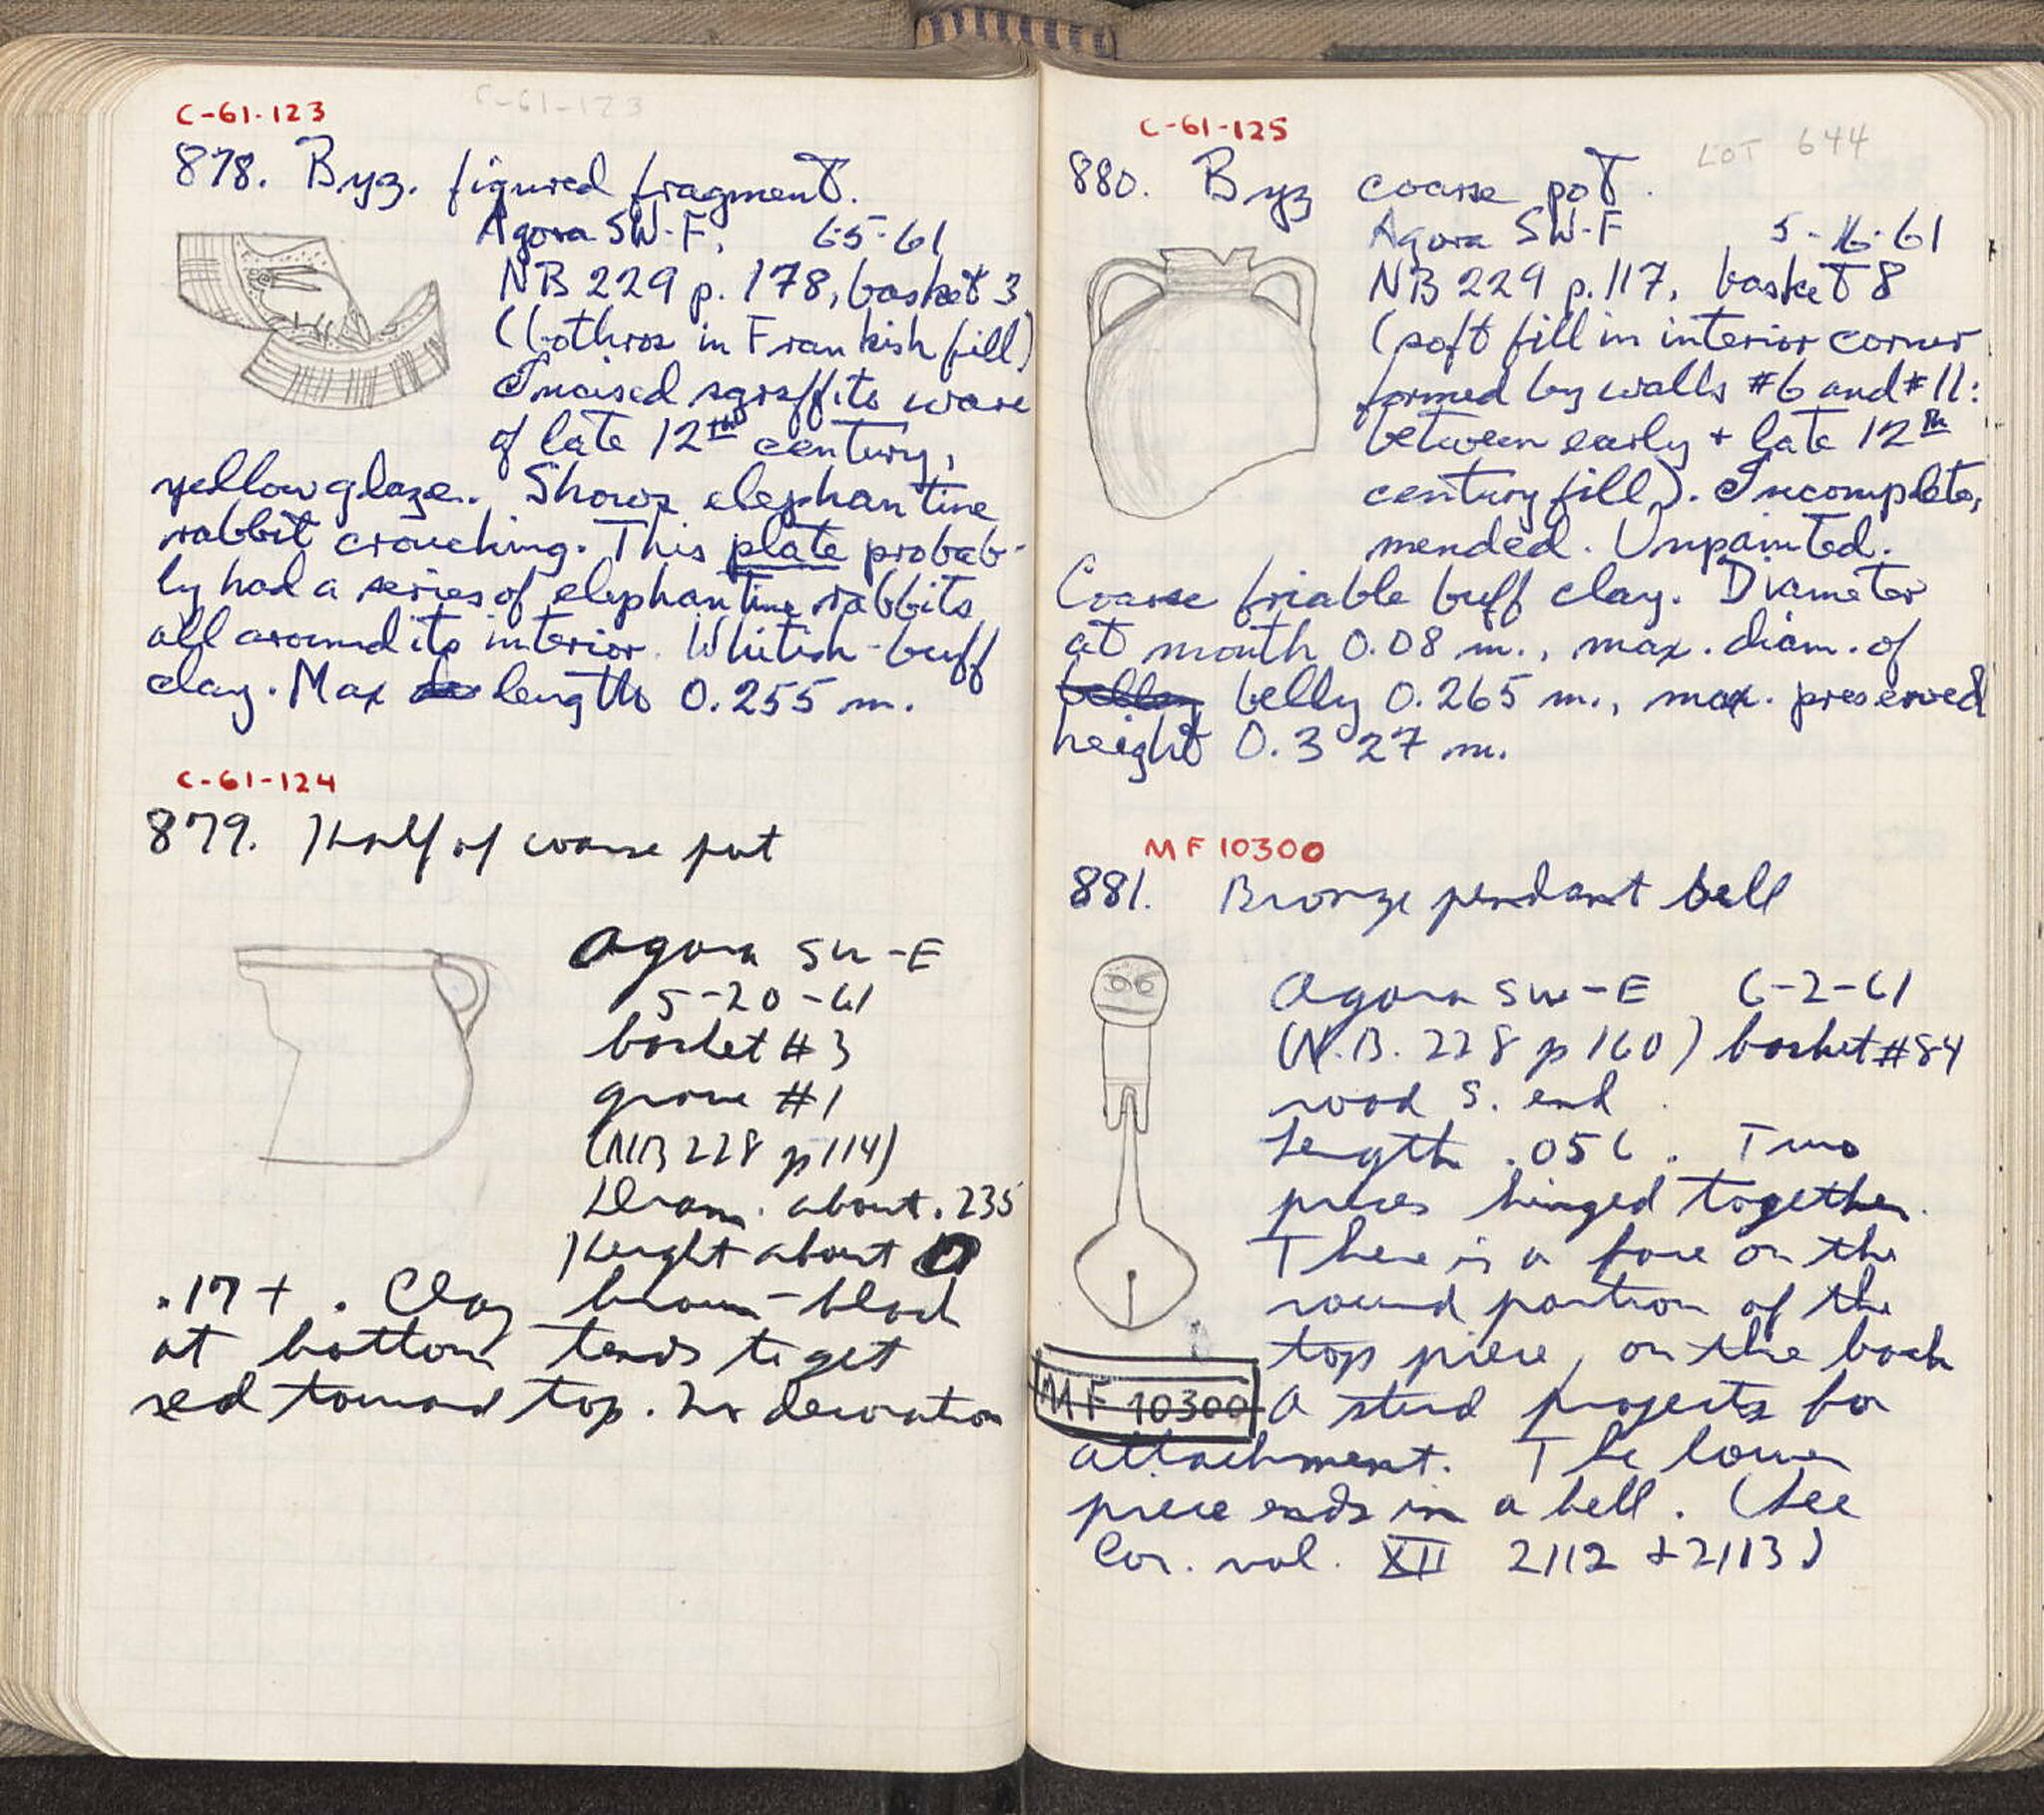 C-61-123
C-61-123
878. Byz. figured fragment.
Agora SW-F, 6-5-61
NB 229 p. 178, basket 3
(bothros in Frankish fill)
Incised sgraffito ware
of late 12th century,
yellow glaze. Shows elephantine
rabbit crouching. This plate probab-
ly had a series of elephantine rabbits
all around its interior. Whitish-buff
clay. Max length 0.255 m.
C-61-124
879. Half of coarse pot
Agora SW-E
5-20-61
basket #3
grave #1
(NB 228 p 114)
Diam. about .235
Height about
.17+. Clay brown-black
at bottom tends to get
red toward top. No decoration
C-61-125
LOT 644
880. Byz coarse pot.
Agora SW-F, 5-16-61
NB 229 p. 117, basket 8
(soft fill in interior corner
formed by walls #6 and #11:
between early + late 12th
century fill). Incomplete,
mended. Unpainted.
Coarse friable buff clay. Diameter
at mouth 0.08 m., max. diam. of
belly belly 0.265 m., max. preserved
height 0.327 m.
MF 10300
881. Bronze pendant bell
Agora SW-E 6-2-61
(N.B. 228 p 160) basket #84
road S. end
Length .056. Two
pieces hinged together.
There is a face on the
round portion of the
top piece, on the back
MF 10300 a stud projects for
attachment. The lower
piece ends in a bell. (See
Cor. vol. XII 2112 + 2113)